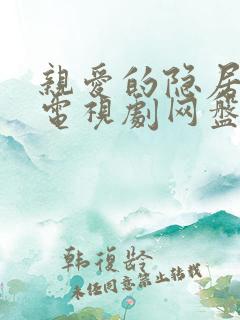 親愛的隐居
電視劇网盤
韩復龄
未经同意禁止转载